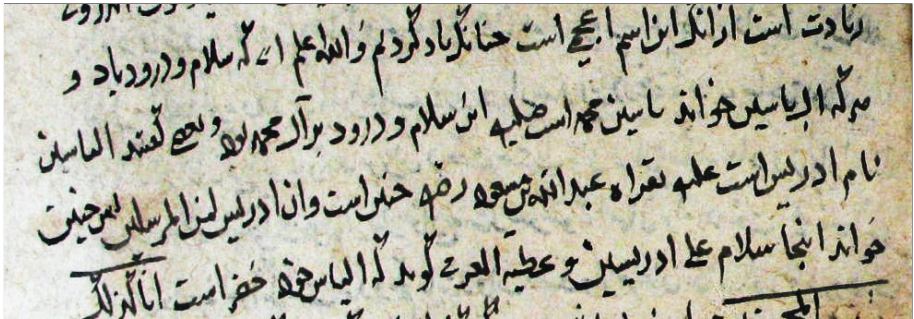 زیادت است از انک این اسم اعجمی است چنانک یاد کردیم و الله اعلم ای که سلام و درود باد و
هر که ال یاسین خواند یاسین محمد است صلی این سلام و درود بر آل محمد بود و بعضی گفتند الیاسین
نام ادریس است علیه بقراه عبدالله بن مسعود رضه چنین است وان ادریس لمن المرسلین پس چنین
خواند اینجا سلام علی ادریسین و عطیة العوفی گوید که الیاس خود خضر است